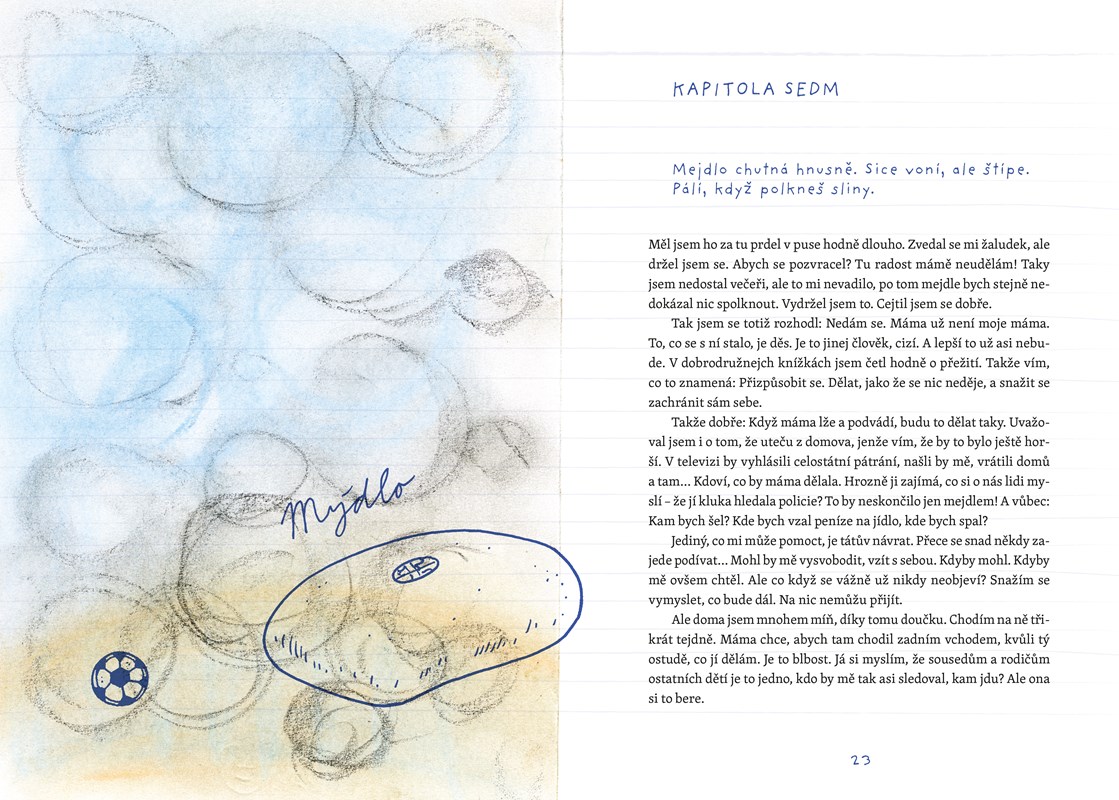 Mýdlo
KAPITOLA SEDM
Mejdlo chutná hnusně. Sice voní, ale štípe.
Pálí, když polkneš sliny.
Měl jsem ho za tu prdel v puse hodně dlouho. Zvedal se mi žaludek, ale
držel jsem se. Abych se pozvracel? Tu radost mámě neudělám! Taky
jsem nedostal večeři, ale to mi nevadilo, po tom mejdle bych stejně ne-
dokázal nic spolknout. Vydržel jsem to. Cejtil jsem se dobře.
Tak jsem se totiž rozhodl: Nedám se. Máma už není moje máma.
To, co se s ní stalo, je děs. Je to jinej člověk, cizí. A lepší to už asi nebu-
de. V dobrodružnejch knížkách jsem četl hodně o přežití. Takže vím,
co to znamená: Přizpůsobit se. Dělat, jako že se nic neděje, a snažit se
zachránit sám sebe.
Takže dobře: Když máma lže a podvádí, budu to dělat taky. Uvažo-
val jsem i o tom, že uteču z domova, jenže vím, že by to bylo ještě hor-
ší. V televizi by vyhlásili celostátní pátrání, našli by mě, vrátili domů
a tam… Kdoví, co by máma dělala. Hrozně ji zajímá, co si o nás lidi my-
slí – že jí kluka hledala policie? To by neskončilo jen mejdlem! A vůbec:
Kam bych šel? Kde bych vzal peníze na jídlo, kde bych spal?
Jediný, co mi může pomoct, je tátův návrat. Přece se snad někdy za-
jede podívat… Mohl by mě vysvobodit, vzít s sebou. Kdyby mohl. Kdyby
mě ovšem chtěl. Ale co když se vážně už nikdy neobjeví? Snažím se
vymyslet, co bude dál. Na nic nemůžu přijít.
Ale doma jsem mnohem míň, díky tomu doučku. Chodím na ně tři-
krát tejdně. Máma chce, abych tam chodil zadním vchodem, kvůli tý
ostudě, co jí dělám. Je to blbost. Já si myslím, že sousedům a rodičům
ostatních dětí je to jedno, kdo by mě tak asi sledoval, kam jdu? Ale ona
si to bere.
23